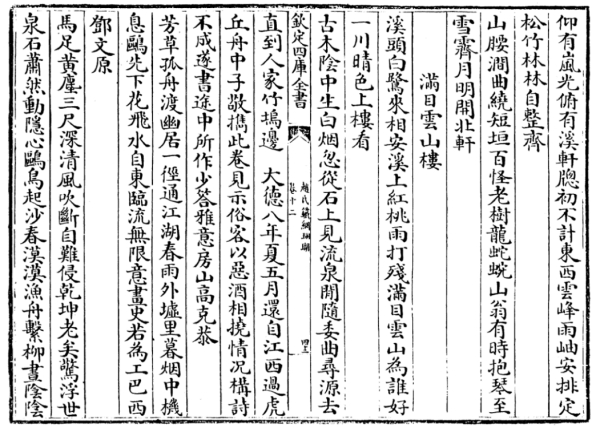 仰有嵐光俯有溪軒牎初不計東西雲峰雨岫安排定
松竹林林自整齊
山腰澗曲繞短垣百怪老樹龍蛇蜿山翁有時抱琴至
雪霽月明開北軒
滿目雲山樓
溪頭白鷺來相安溪上紅桃雨打殘滿目雲山為誰好
一川晴色上樓看
古木陰中生白烟忽從石上見流泉閒隨委曲尋源去
欽定四庫全書
趙氏鐵網珊瑚
卷十二
四三
直到人家竹塢邊 大德八年夏五月還自江西過虎
丘舟中子敬攜此卷見示俗客以惡酒相撓情况構詩
不成遂書途中所作少答雅意房山高克恭
芳草孤舟渡幽居一徑通江湖春雨外墟里暮烟中機
息鷗先下花飛水自東臨流無限意畫史若為工巴西
鄧文原
馬足黄塵三尺深清風吹斷自難侵乾坤老矣驚浮世
泉石蕭然動隱心鷗鳥起沙春漠漠漁舟繫柳晝陰陰